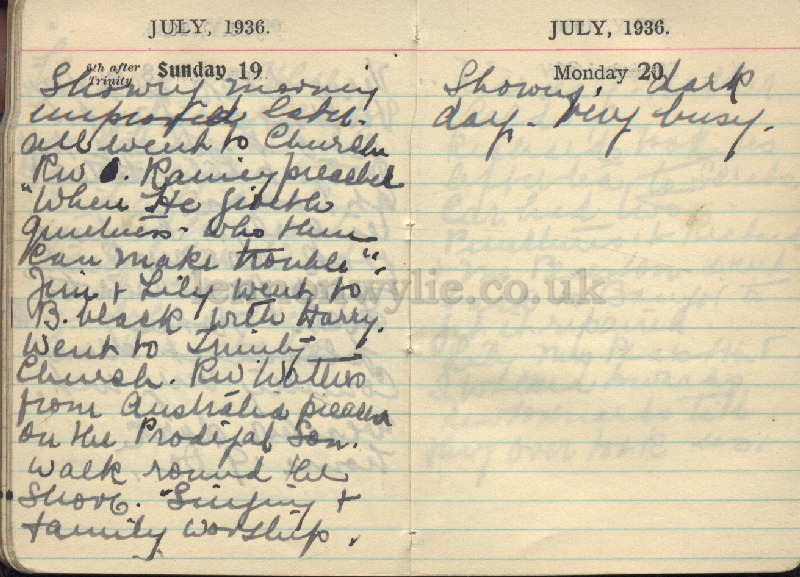 JULY, 1936.
6th after
Trinity
Sunday 19
Showery morning
improved later.
all went to Church
Rev . Rainey preached
"When He giveth
quietness - who then
can make trouble".
Jim + Lily went to
B. black with Harry.
Went to Trinity
Church. Rev Watters
from Australia preached
on the Prodigal Son.
Walk round the
Shore. Singing +
family worship.
JULY, 1936.
Monday 20
Showery, dark
day. Very busy.
lennonwylie.co.uk